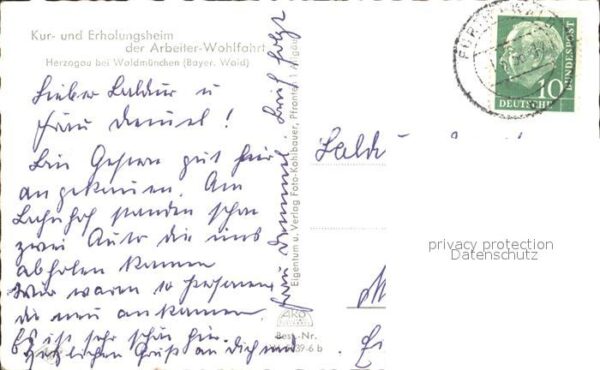 Kur- und Erholungsheim
der Arbeiter-Wohlfahrt
Herzogau bei Waldmünchen (Bayer. Wald)
Lieber Baldur u
Frau
Bin Gestern gut hier
angekommen. Am
Bahnhof standen schon
zwei Auto die uns
abholen kamen
Wir waren 10 Personen
die neu ankamen.
Es ist sehr schön hier.
Herzlichen Gruß an Dich und
Frau Brief folgt
Eigentum u. Verlag Foto-Kohlbauer, Pfronten i. Allgäu
Best.-Nr.
39-6 b
FURTH
10
DEUTSCHE
BUNDESPOST
privacy protection
Datenschutz